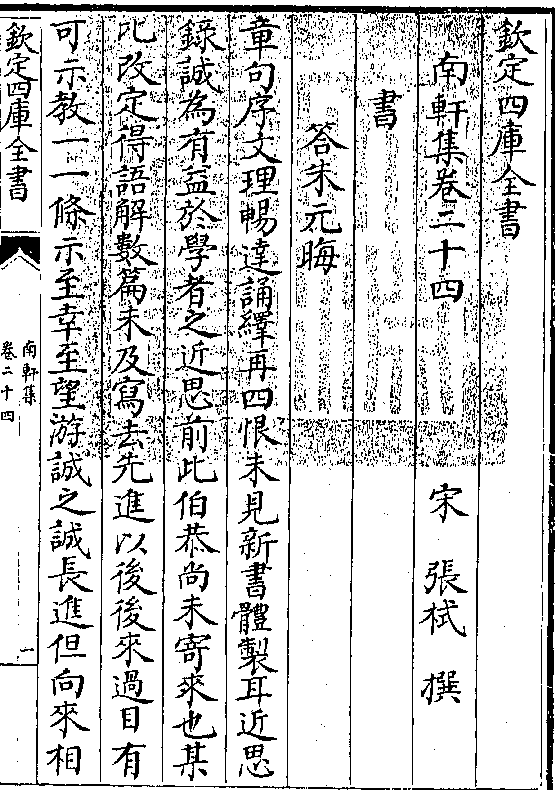 欽定四庫全書
南軒集卷二十四
宋 張栻 撰
書
答朱元晦
章句序文理暢達誦繹再四恨未見新書體製耳近思
錄誠為有益於學者之近思前此伯恭尚未寄來也某
比改定得語解數篇未及寫去先進以後後來過目有
可示教一一條示至幸至望游誠之誠長進但向來相
欽定四庫全書
南軒集
卷二十四
一